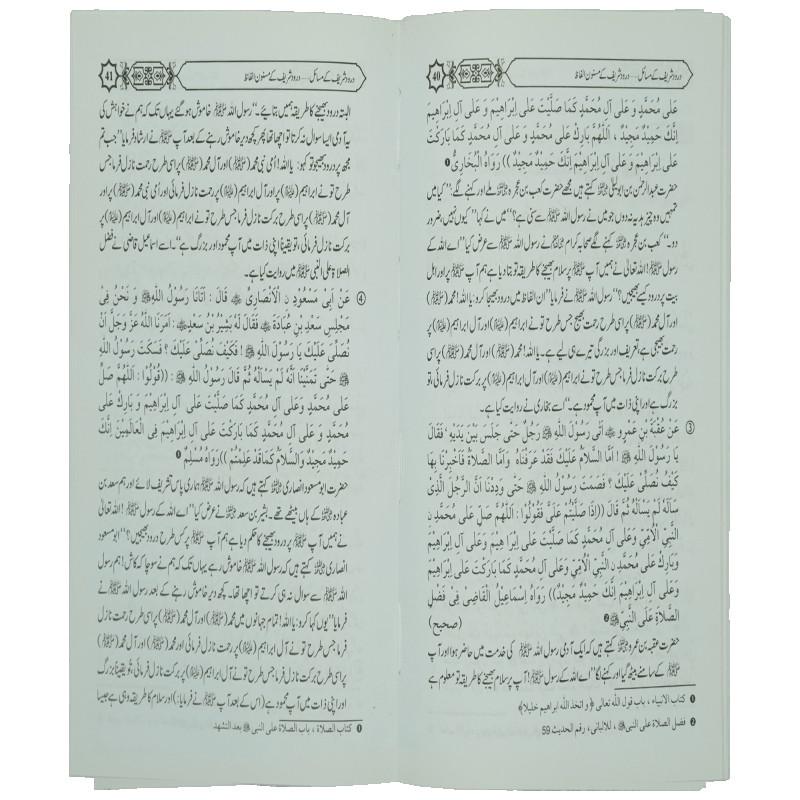 40
درود شریف کے مسائل ..... درود شریف کے مسنون الفاظ
عَلَى مُحَمَّدٍ وَ عَلَى آلِ مُحَمَّدٍ كَمَا صَلَّيْتَ عَلَى اِبْرَاهِيْمَ وَ عَلَى آلِ اِبْرَاهِيْمَ
اِنَّكَ حَمِيْدٌ مَّجِيْدٌ ، اَللّٰهُمَّ بَارِكْ عَلَى مُحَمَّدٍ وَ عَلَى آلِ مُحَمَّدٍ كَمَا بَارَكْتَ
عَلَى اِبْرَاهِيْمَ وَ عَلَى آلِ اِبْرَاهِيْمَ اِنَّكَ حَمِيْدٌ مَّجِيْدٌ )) رَوَاهُ الْبُخَارِيُّ ❶
حضرت عبدالرحمٰن بن ابولیلیٰ ؓ کہتے ہیں مجھے حضرت کعب بن عجرہ ؓ ملے اور کہنے لگے: ”کیا میں
تمہیں وہ چیز ہدیہ نہ دوں جو میں نے رسول اللہ ﷺ سے سنی ہے؟“ میں نے کہا ”کیوں نہیں ضرور
دو۔“ کعب بن عجرہ ؓ کہنے لگے صحابہ کرام ؓ نے رسول اللہ ﷺ سے عرض کیا ”اے اللہ کے
رسول ﷺ! اللہ تعالیٰ نے ہمیں آپ پر سلام بھیجنے کا طریقہ تو بتا دیا ہے ہم آپ پر اور اہل
بیت پر درود کیسے بھیجیں؟“ رسول اللہ ﷺ نے فرمایا ”ان الفاظ میں درود بھیجا کرو: یا اللہ! محمد (ﷺ)
اور آل محمد (ﷺ) پر اسی طرح رحمت بھیج جس طرح تو نے ابراہیم (علیہ السلام) اور آل ابراہیم (علیہ السلام) پر
رحمت بھیجی ہے، تعریف اور بزرگی تیرے ہی لیے ہے۔ یا اللہ! محمد (ﷺ) اور آل محمد (ﷺ) پر اسی
طرح برکت نازل فرما جس طرح تو نے ابراہیم (علیہ السلام) اور آل ابراہیم (علیہ السلام) پر برکت نازل فرمائی، تو
بزرگ ہے اور اپنی ذات میں آپ محمود ہے۔“ اسے بخاری نے روایت کیا ہے۔
③ عَنْ عُقْبَةَ بْنِ عَمْرٍو ؓ أَتَى رَسُوْلَ اللّٰهِ ﷺ رَجُلٌ حَتّٰى جَلَسَ بَيْنَ يَدَيْهِ ، فَقَالَ
يَا رَسُوْلَ اللّٰهِ ﷺ ! اَمَّا السَّلَامُ عَلَيْكَ فَقَدْ عَرَفْنَاهُ وَ اَمَّا الصَّلَاةُ فَاَخْبِرْنَا بِهَا
كَيْفَ نُصَلِّيْ عَلَيْكَ ؟ فَصَمَتَ رَسُوْلُ اللّٰهِ ﷺ حَتّٰى وَدِدْنَا اَنَّ الرَّجُلَ الَّذِيْ
سَاَلَهُ لَمْ يَسْاَلْهُ ثُمَّ قَالَ ((اِذَا صَلَّيْتُمْ عَلَىَّ فَقُوْلُوْا : اَللّٰهُمَّ صَلِّ عَلَى مُحَمَّدِ نِ
النَّبِيِّ الْاُمِّيِّ وَعَلَى آلِ مُحَمَّدٍ كَمَا صَلَّيْتَ عَلَى اِبْرَاهِيْمَ وَعَلَى آلِ اِبْرَاهِيْمَ
وَبَارِكْ عَلَى مُحَمَّدِ نِ النَّبِيِّ الْاُمِّيِّ وَعَلَى آلِ مُحَمَّدٍ كَمَا بَارَكْتَ عَلَى اِبْرَاهِيْمَ
وَعَلَى آلِ اِبْرَاهِيْمَ اِنَّكَ حَمِيْدٌ مَّجِيْدٌ)) رَوَاهُ اِسْمَاعِيْلُ الْقَاضِيُ فِيْ فَضْلِ
الصَّلَاةِ عَلَى النَّبِيِّ ﷺ ❷ (صحیح)
حضرت عقبہ بن عمرو ؓ کہتے ہیں کہ ایک آدمی رسول اللہ ﷺ کی خدمت میں حاضر ہوا اور آپ
ﷺ کے سامنے بیٹھ گیا اور کہنے لگا ”اے اللہ کے رسول ﷺ! آپ پر سلام بھیجنے کا طریقہ تو معلوم ہے
❶ کتاب الانبیاء ، باب قول اللہ تعالیٰ ﴿ و اتخذ اللہ ابراہیم خلیلا﴾
❷ فضل الصلاة على النبی ﷺ ، للالبانی ، رقم الحدیث 59
41
درود شریف کے مسائل ..... درود شریف کے مسنون الفاظ
البتہ درود بھیجنے کا طریقہ ہمیں بتایئے۔“ رسول اللہ ﷺ خاموش ہو گئے یہاں تک کہ ہم نے خواہش کی
یہ آدمی ایسا سوال نہ کرتا تو اچھا تھا پھر کچھ دیر خاموش رہنے کے بعد آپ ﷺ نے ارشاد فرمایا ”جب تم
مجھ پر درود بھیجو تو کہو: یا اللہ! اُمی نبی محمد (ﷺ) اور آل محمد (ﷺ) پر اسی طرح رحمت نازل فرما جس
طرح تو نے ابراہیم (علیہ السلام) پر اور آل ابراہیم (علیہ السلام) پر رحمت نازل فرمائی اور اُمی نبی محمد (ﷺ) پر اور
آل محمد (ﷺ) پر اسی طرح برکت نازل فرما جس طرح تو نے ابراہیم (علیہ السلام) پر اور آل ابراہیم (علیہ السلام) پر
برکت نازل فرمائی، تو یقیناً اپنی ذات میں آپ محمود اور بزرگ ہے“۔ اسے اسماعیل قاضی نے فضل
الصلاۃ علی النبی ﷺ میں روایت کیا ہے۔
④ عَنْ اَبِيْ مَسْعُوْدٍ نِ الْاَنْصَارِيِّ ؓ قَالَ : اَتَانَا رَسُوْلُ اللّٰهِ ﷺ وَ نَحْنُ فِيْ
مَجْلِسِ سَعْدِ بْنِ عُبَادَةَ ؓ فَقَالَ لَهُ بَشِيْرُ بْنُ سَعْدٍ : اَمَرَنَا اللّٰهُ عَزَّ وَجَلَّ اَنْ
نُصَلِّيَ عَلَيْكَ يَا رَسُوْلَ اللّٰهِ ﷺ ! فَكَيْفَ نُصَلِّيْ عَلَيْكَ ؟ فَسَكَتَ رَسُوْلُ اللّٰهِ
ﷺ حَتّٰى تَمَنَّيْنَا اَنَّهُ لَمْ يَسْاَلْهُ ثُمَّ قَالَ رَسُوْلُ اللّٰهِ ﷺ : ((قُوْلُوْا : اَللّٰهُمَّ صَلِّ
عَلَى مُحَمَّدٍ وَعَلَى آلِ مُحَمَّدٍ كَمَا صَلَّيْتَ عَلَى آلِ اِبْرَاهِيْمَ وَ بَارِكْ عَلَى
مُحَمَّدٍ وَ عَلَى آلِ مُحَمَّدٍ كَمَا بَارَكْتَ عَلَى آلِ اِبْرَاهِيْمَ فِى الْعَالَمِيْنَ اِنَّكَ
حَمِيْدٌ مَّجِيْدٌ وَالسَّلَامُ كَمَا قَدْ عَلِمْتُمْ )) رَوَاهُ مُسْلِمٌ ❶
حضرت ابو مسعود انصاری ؓ کہتے ہیں کہ رسول اللہ ﷺ ہمارے پاس تشریف لائے اور ہم سعد بن
عبادہ ؓ کے ہاں بیٹھے تھے۔ بشیر بن سعد ؓ نے عرض کیا ”اے اللہ کے رسول ﷺ! اللہ تعالیٰ
نے ہمیں آپ ﷺ پر درود بھیجنے کا حکم دیا ہے ہم آپ ﷺ پر کس طرح درود بھیجیں؟“ ابو مسعود
انصاری ؓ کہتے ہیں کہ رسول اللہ ﷺ خاموش رہے یہاں تک کہ ہم نے سوچا کہ کاش! ہم رسول
اللہ ﷺ سے سوال نہ ہی کرتے تو اچھا تھا۔ کچھ دیر خاموش رہنے کے بعد رسول اللہ ﷺ نے
فرمایا ”یوں کہا کرو: یا اللہ! تمام جہانوں میں محمد (ﷺ) اور آل محمد (ﷺ) پر اسی طرح رحمت نازل
فرما جس طرح تو نے آل ابراہیم (علیہ السلام) پر رحمت نازل فرمائی اور محمد (ﷺ) اور آل محمد (ﷺ)
پر اسی طرح برکت نازل فرما جس طرح تو نے آل ابراہیم (علیہ السلام) پر برکت نازل فرمائی، تو یقیناً بزرگ
اور اپنی ذات میں آپ محمود ہے (اس کے بعد آپ ﷺ نے فرمایا:) اور سلام کا طریقہ وہی ہے جیسا
❶ کتاب الصلاة ، باب الصلاة على النبی ﷺ بعد التشهد